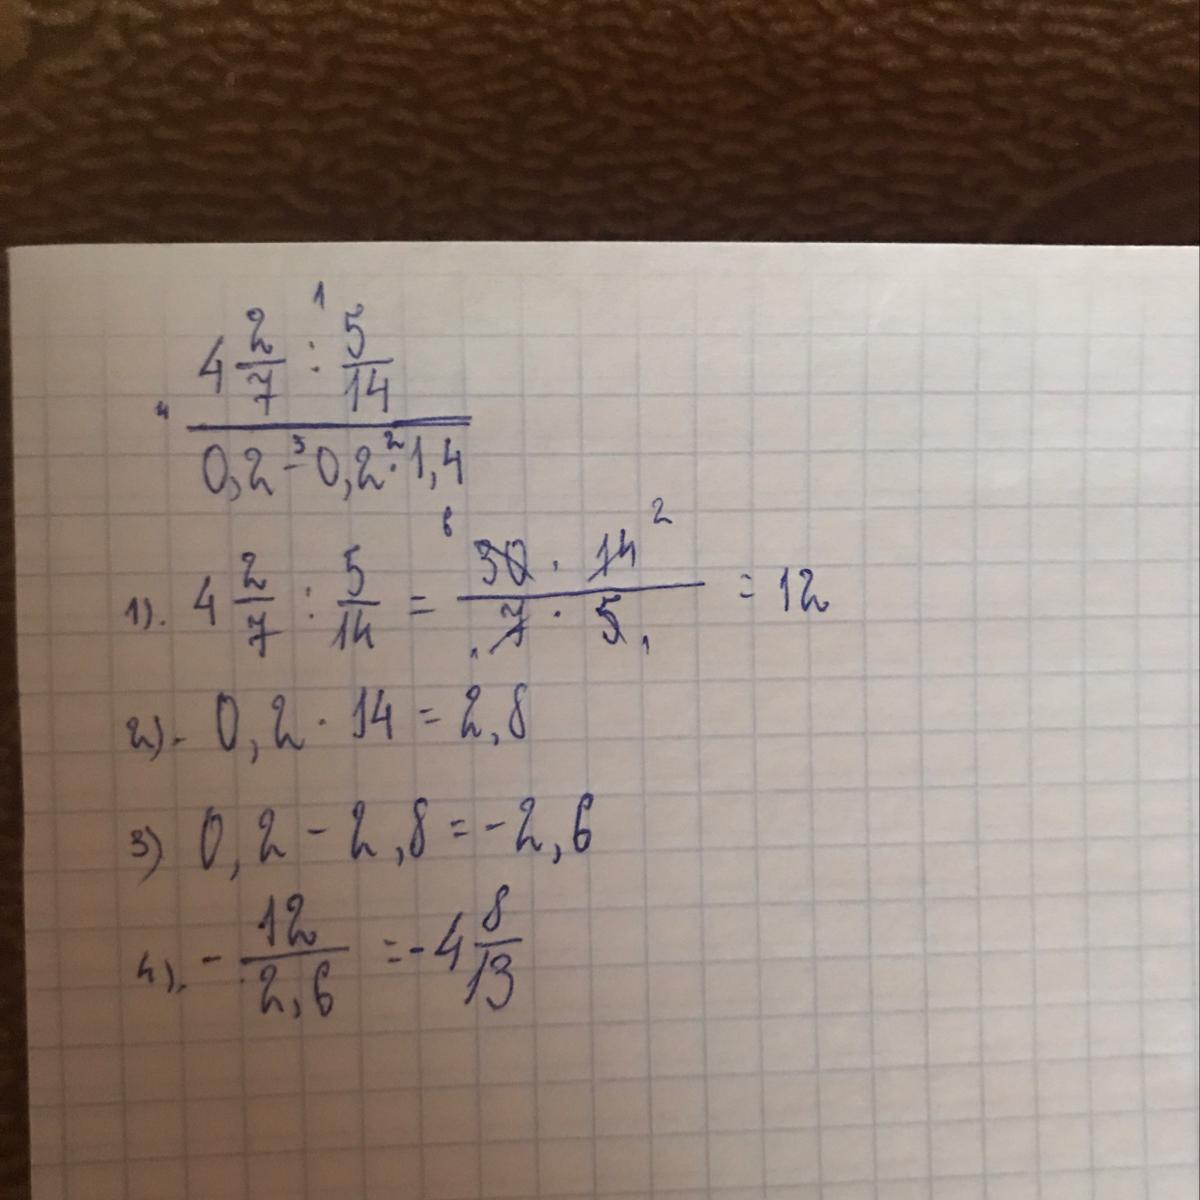 1
4 2/7 : 5/14
4
3 2
0,2 - 0,2 · 1,4
6 2
1). 4 2/7 : 5/14 = 30 · 14 / 7 · 5 = 12
1 1
2). 0,2 · 14 = 2,8
3) 0,2 - 2,8 = -2,6
4). - 12/2,6 = -4 8/13